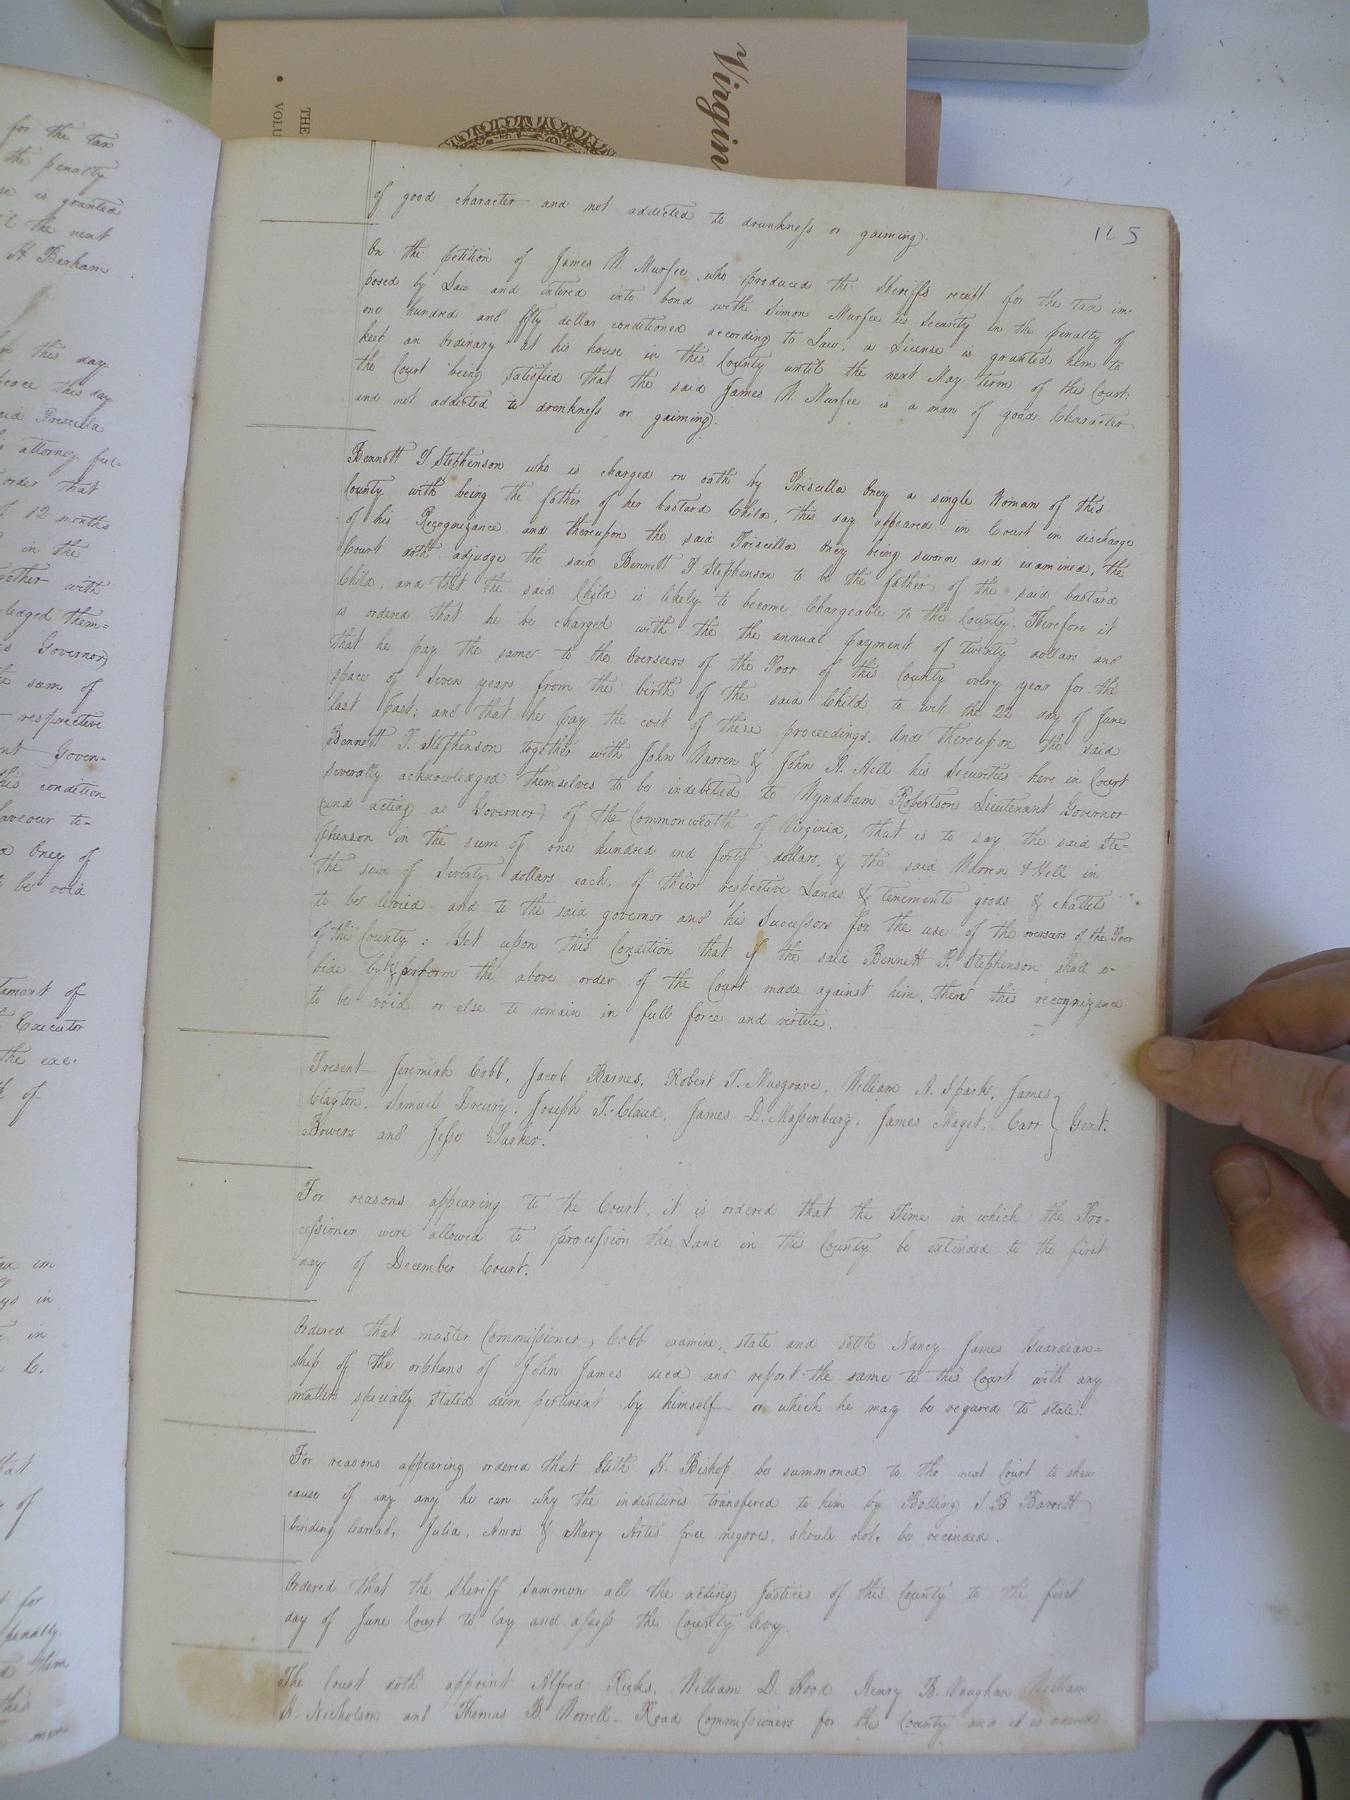 Virgin
THE
VOLU
for the tax
the penalty
se is granted
til the next
H Barham
this day
peace this day
said Priscilla
attorney ful-
order that
of 12 months
in the
together with
ledged them=
Governor)
the sum of
respective
ent Gover-
this condition
haveour to-
Oney of
to be void
tament of
Executor
the exe-
of
tax im
ys in
in
C.
that
of
for
penalty
them
this
of good character and not addicted to drunkness or gaiming).
115
On the petition of James N. Murfee who produced the Sheriffs receipt for the tax im-
posed by Law and entered into bond with Simon Murfee his Security in the penalty of
one hundred and fifty dollar conditioned according to Law, a License is granted him to
keep an Ordinary at his house in this County until the next May term of this Court:
the Court being satisfied that the said James N. Murfee is a man of good Character
and not addicted to drunkness or gaiming).
Bennett T Stephenson who is charged on oath by Priscilla Oney a single Woman of this
County with being the father of her bastard Child, this day appeared in Court in discharge
of his Recognizance and thereupon the said Priscilla Oney being sworn and examined, the
Court doth adjudge the said Bennett T Stephenson to be the father of the said bastard
Child, and that the said Child is likely to become Chargeable to the County. Therefore it
is ordered that he be charged with the the annual payment of twenty dollars and
that he pay the same to the Overseers of the Poor of this County every year for the
space of seven years from the birth of the said Child to wit the 22 day of June
last past; and that he pay the cost of these proceedings. And thereupon the said
Bennett T. Stephenson together with John Warren & John A. Hill his Securities here in Court
severally acknowledged themselves to be indebted to Wyndham Robertson Lieutenant Governor
(and acting as Governor) of the Commonwealth of Virginia, that is to say the said Ste-
phenson in the sum of one hundred and forty dollars, & the said Warren & Hill in
the sum of Seventy dollars each, of their respective Lands & tenements goods & chattels
to be levied and to the said governor and his Successors for the use of the oversars of the Poor
of this County: Yet upon this Condition that if the said Bennett T. Stephenson shall a-
bide by & perform the above order of the Court made against him, then this recognizance
to be void or else to remain in full force and virtue.
Present Jeremiah Cobb, Jacob Barnes, Robert T. Musgrave, William A. Spark, James
Clayton, Samuel Drewry, Joseph T. Claud, James D. Massenburg, James Maget, Carr } Gent.
Bowers and Jesse Parker.
For reasons appearing to the Court, it is ordered that the Time in which the Pro-
cessioner were allowed to procession the Land in this County be extended to the first
day of December Court.
Ordered that master Commissioner Cobb examine, state and settle Nancy James Guardian=
ship of the orphans of John James decd and report the same to this Court with any
matters specially stated deem pertinent by himself or which he may be requred to state.
For reasons appearing ordered that H. Bishop be summoned to the next Court to shew
cause if any any he can why the indentures transfered to him by Bolling J B Barrett
binding Julia, Amos & Mary Artis free negroes, should not be recinded.
Ordered that the Sheriff Summon all the acting Justices of this County to the first
day of June Court to lay and assess the County levy.
The Court doth appoint Alfred Ricks, William D. Hood Henry B. Vaughan William
N. Nicholson and Thomas B. Worrell Road Commissioners for this County and it is ordered